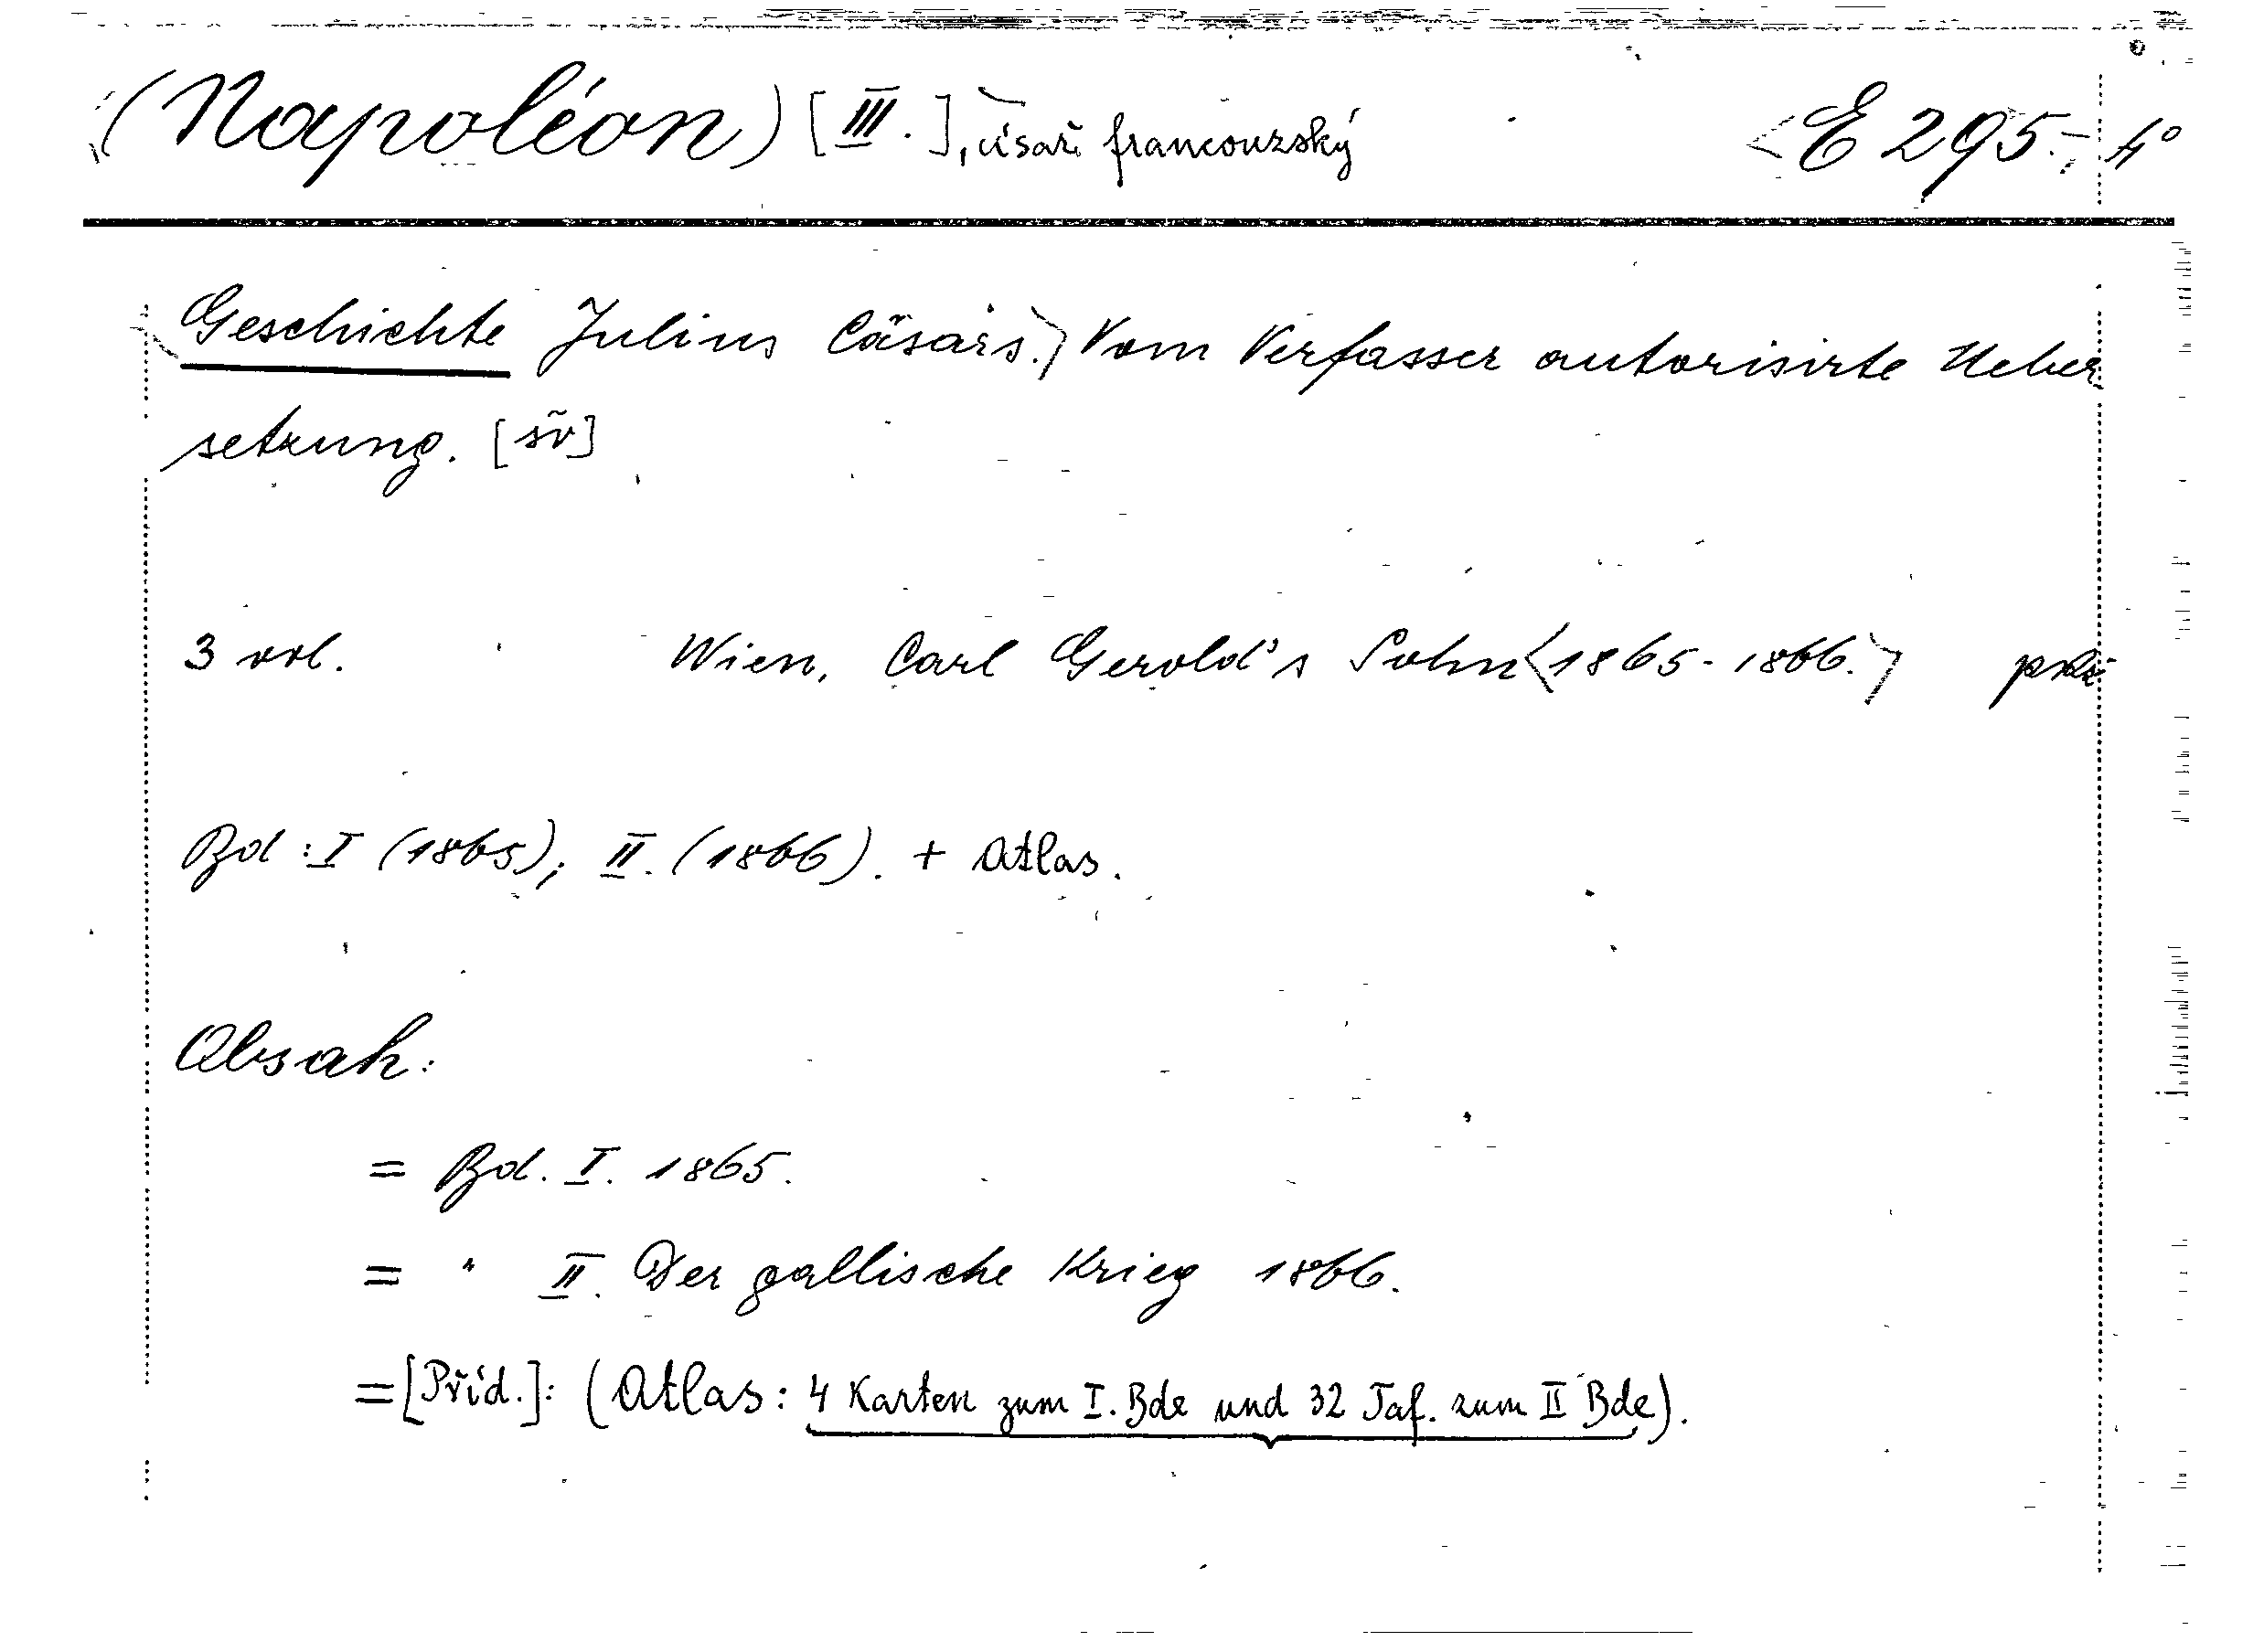 (Napoléon) [III.], císař francouzský <E 295.> 4°
Geschichte Julius Cäsars.> Vom Verfasser autorisirte Ueber
setzung. [sv]
3 vol. Wien, Carl Gerold's Sohn <1865-1866.>
Bd: I (1865); II. (1866). + Atlas.
Obsah:
= Bd. I. 1865.
= " II. Der gallische Krieg 1866.
= [Příd.]: (Atlas: 4 Karten zum I. Bde und 32 Taf. zum II Bde).